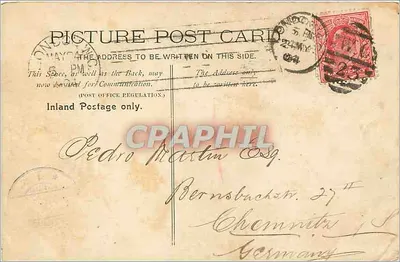 PICTURE POST CARD
THE ADDRESS TO BE WRITTEN ON THIS SIDE.
This Space, as well as the Back, may
now be used for Communication.
(POST OFFICE REGULATION.)
The Address only
to be written here.
Inland Postage only.
LONDON
6 PM
MY
04
23
CPRAPHIL
Pedro Martin Esq.
Bernsbachstr. 27 II
Chemnitz i/S
Germany